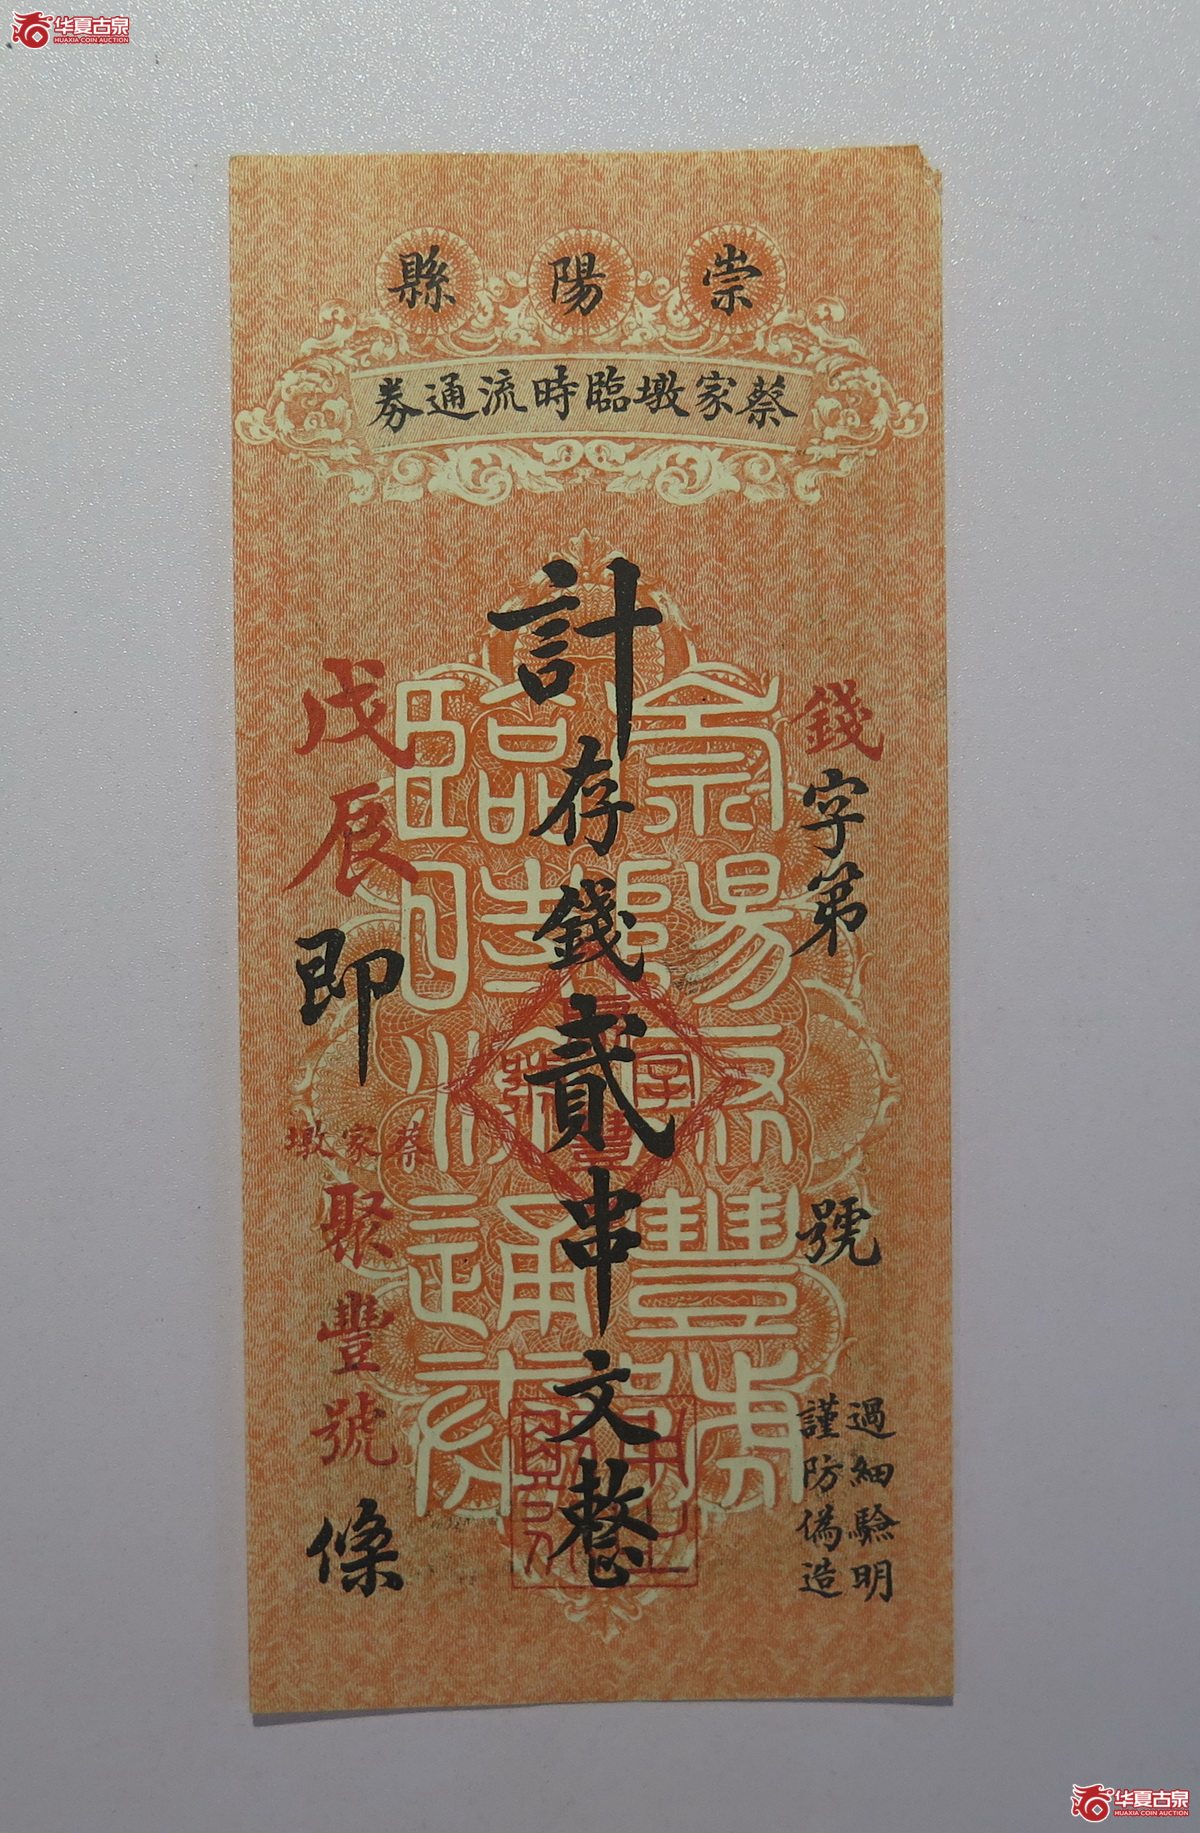 华夏古泉
HUAXIA COIN AUCTION
崇陽縣
蔡家墩臨時流通券
錢字第 號
過細驗明
謹防偽造
計存錢貳串文整
戊辰即
蔡家墩
聚豐號條
华夏古泉
HUAXIA COIN AUCTION